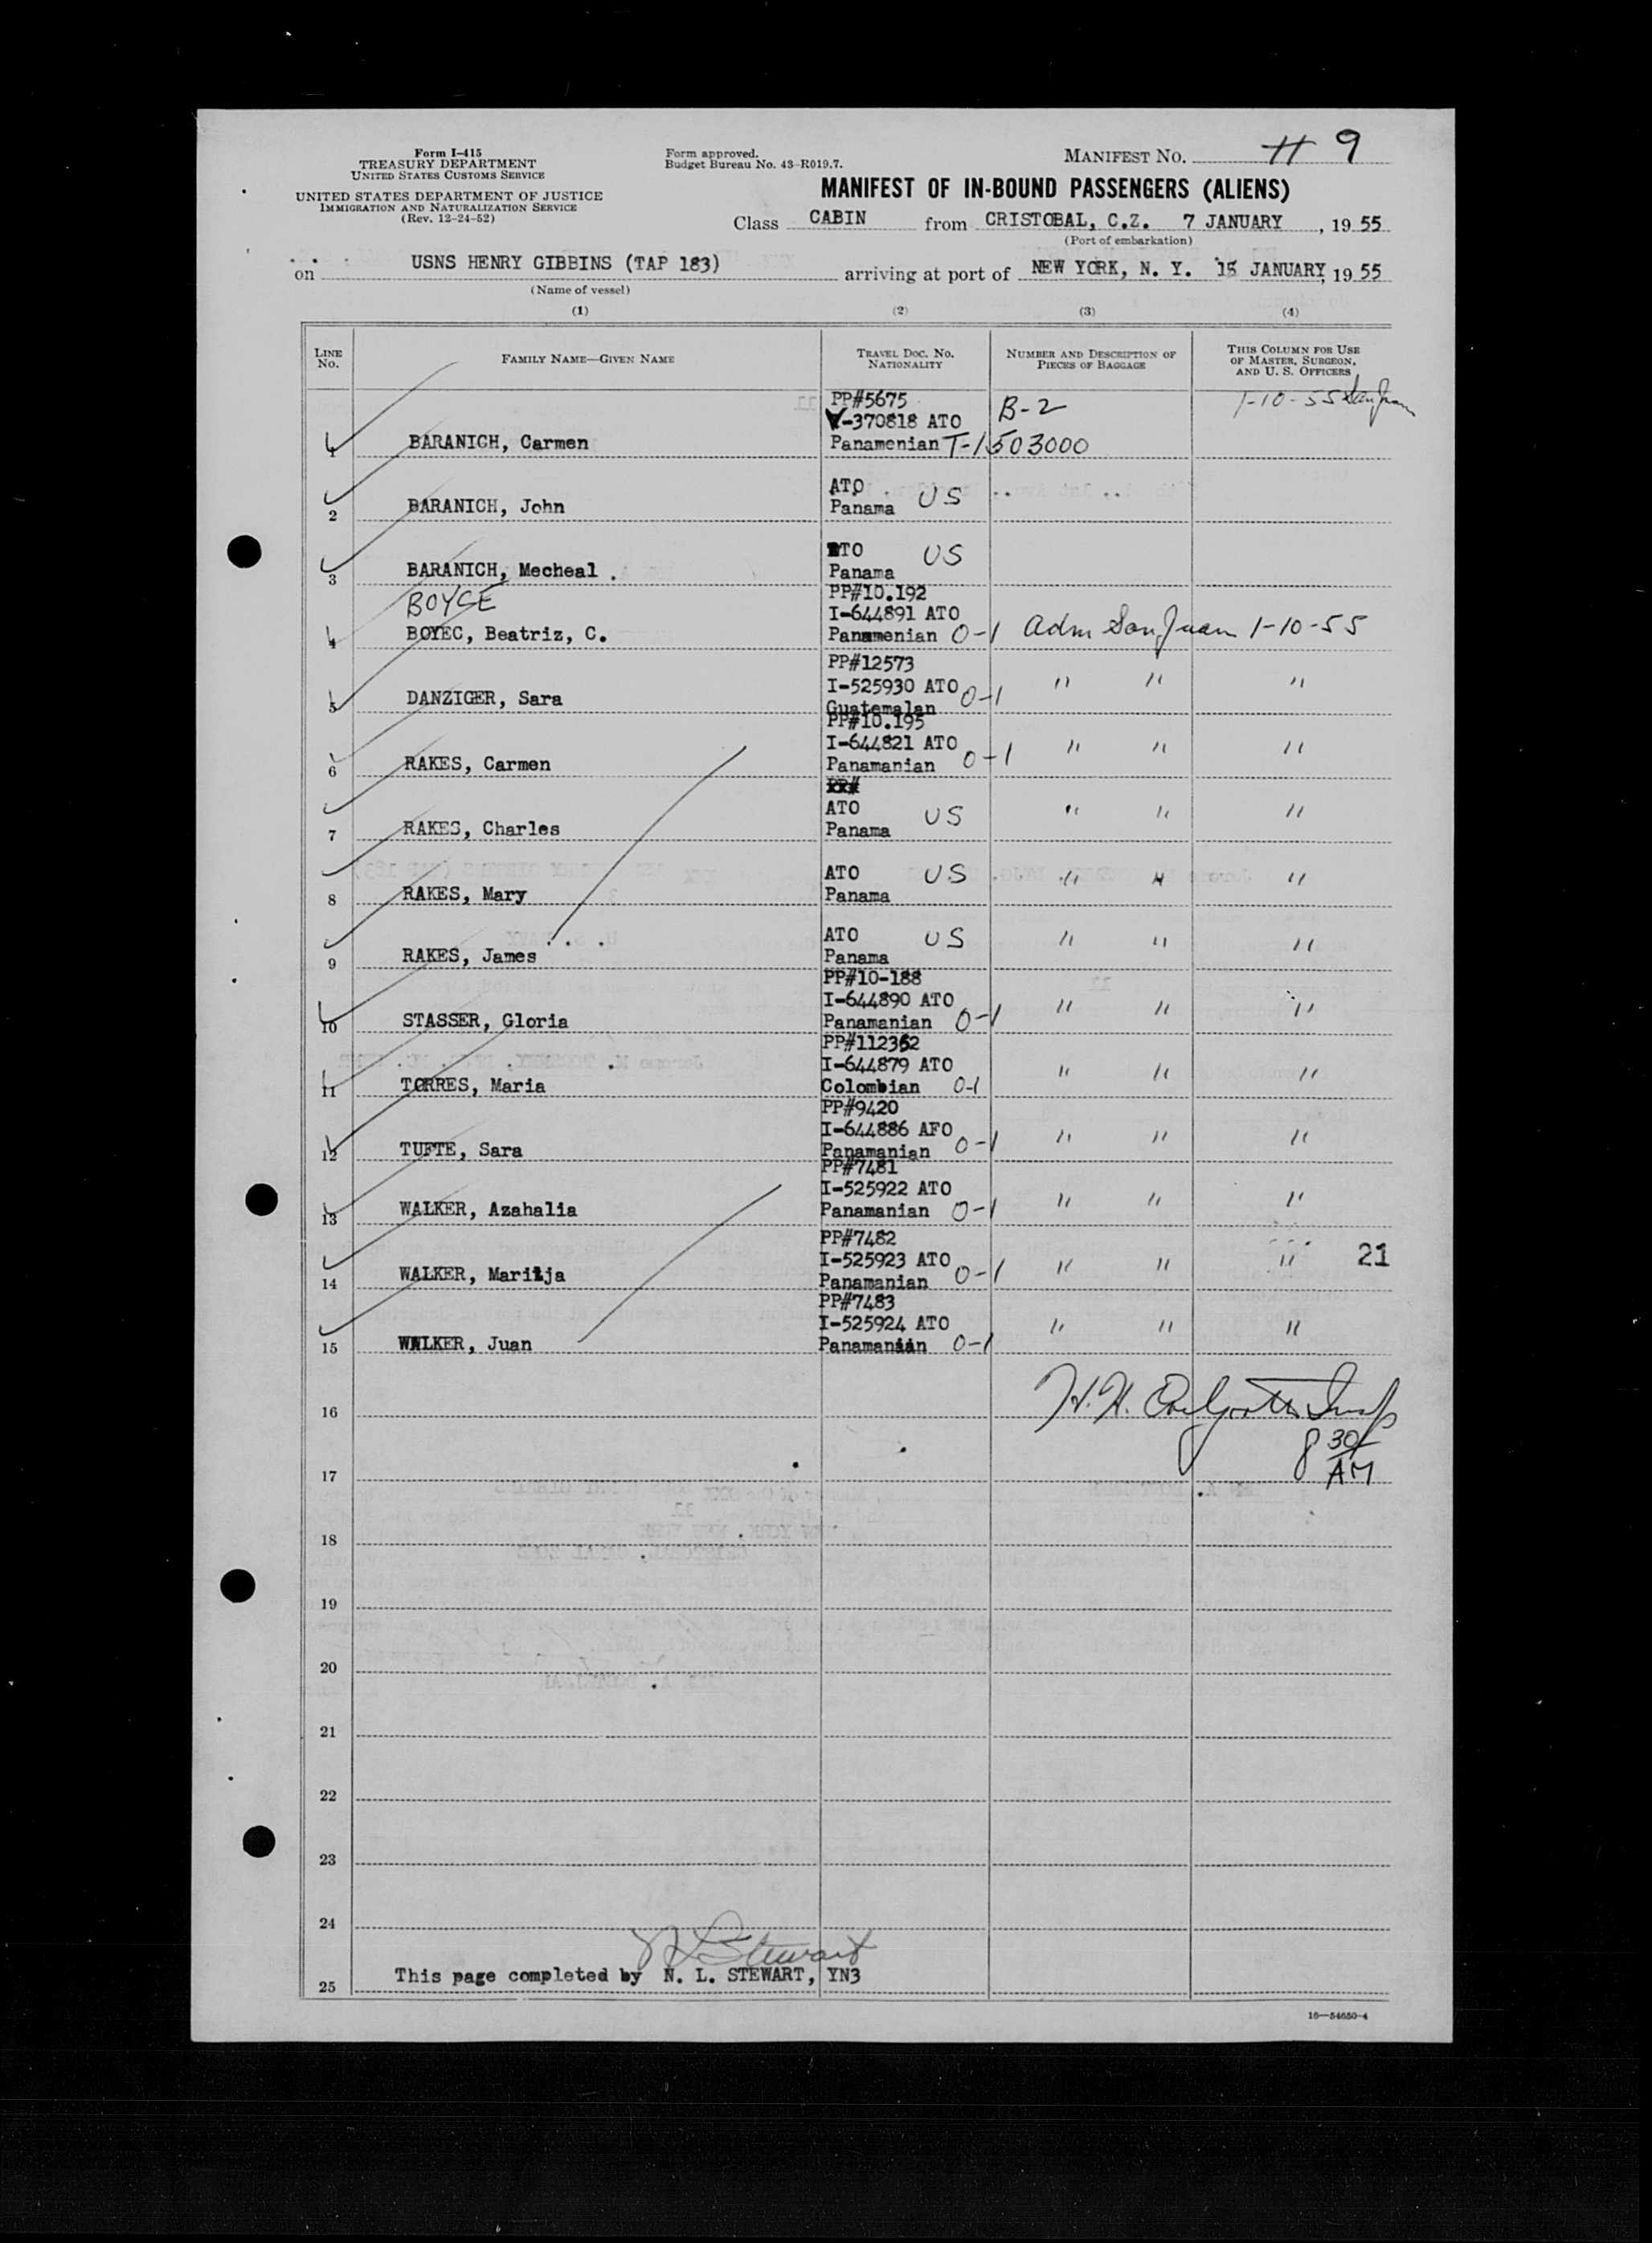 Form I-415
TREASURY DEPARTMENT
UNITED STATES CUSTOMS SERVICE
UNITED STATES DEPARTMENT OF JUSTICE
IMMIGRATION AND NATURALIZATION SERVICE
(Rev. 12-24-52)
Form approved.
Budget Bureau No. 43-R019.7.
MANIFEST No. 9
MANIFEST OF IN-BOUND PASSENGERS (ALIENS)
Class CABIN from CRISTOBAL, C.Z. 7 JANUARY, 1955
(Port of embarkation)
on USNS HENRY GIBBINS (TAP 183) arriving at port of NEW YORK, N. Y. 15 JANUARY, 1955
(Name of vessel)
(1) (2) (3) (4)
LINE No. FAMILY NAME—GIVEN NAME TRAVEL DOC. No. NATIONALITY NUMBER AND DESCRIPTION OF PIECES OF BAGGAGE THIS COLUMN FOR USE OF MASTER, SURGEON, AND U. S. OFFICERS
PP#5675 1-10-55 San Juan
V-370818 ATO B-2
1 BARANICH, Carmen Panamenian T-1503000
ATO US
2 BARANICH, John Panama
ATO US
3 BARANICH, Mecheal . Panama
BOYCE PP#10.192
I-644891 ATO
4 BOYEC, Beatriz, C. Panamenian 0-1 Adm San Juan 1-10-55
PP#12573
I-525930 ATO 0-1 " " "
5 DANZIGER, Sara Guatemalan
PP#10.195
I-644821 ATO 0-1 " " "
6 RAKES, Carmen Panamanian
PP#
ATO US " " "
7 RAKES, Charles Panama
ATO US " " "
8 RAKES, Mary Panama
ATO US " " "
9 RAKES, James Panama
PP#10-188
I-644890 ATO " " "
10 STASSER, Gloria Panamanian 0-1
PP#112352
I-644879 ATO " " "
11 TORRES, Maria Colombian 0-1
PP#9420
I-644886 AFO 0-1 " " "
12 TUFTE, Sara Panamanian
PP#7481
I-525922 ATO " " "
13 WALKER, Azahalia Panamanian 0-1
PP#7482
I-525923 ATO 0-1 " " " 21
14 WALKER, Maritja Panamanian
PP#7483
I-525924 ATO " " "
15 WALKER, Juan Panamanian 0-1
16
8 30 AM
17
18
19
20
21
22
23
24
N L Stewart
25 This page completed by N. L. STEWART, YN3
16—54650-4